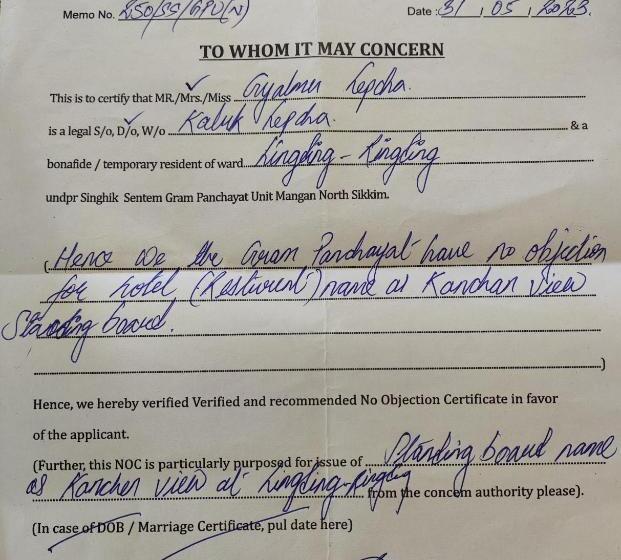 Memo No. 250/SS/GPU(N) Date : 31 , 05 , 2023.
TO WHOM IT MAY CONCERN
This is to certify that MR./Mrs./Miss Gyalmu Lepcha.
is a legal S/o, D/o, W/o Kaluk Lepcha. & a
bonafide / temporary resident of ward Lingding - Lingding
undpr Singhik Sentem Gram Panchayat Unit Mangan North Sikkim.
(Hence We the Gram Panchayat have no objection
for hotel (Resturent) name as Kanchan View
Standing board.
)
Hence, we hereby verified Verified and recommended No Objection Certificate in favor
of the applicant.
(Further, this NOC is particularly purposed for issue of Standing board name
as Kanchen view at from the concern authority please).
(In case of DOB / Marriage Certificate, pul date here)